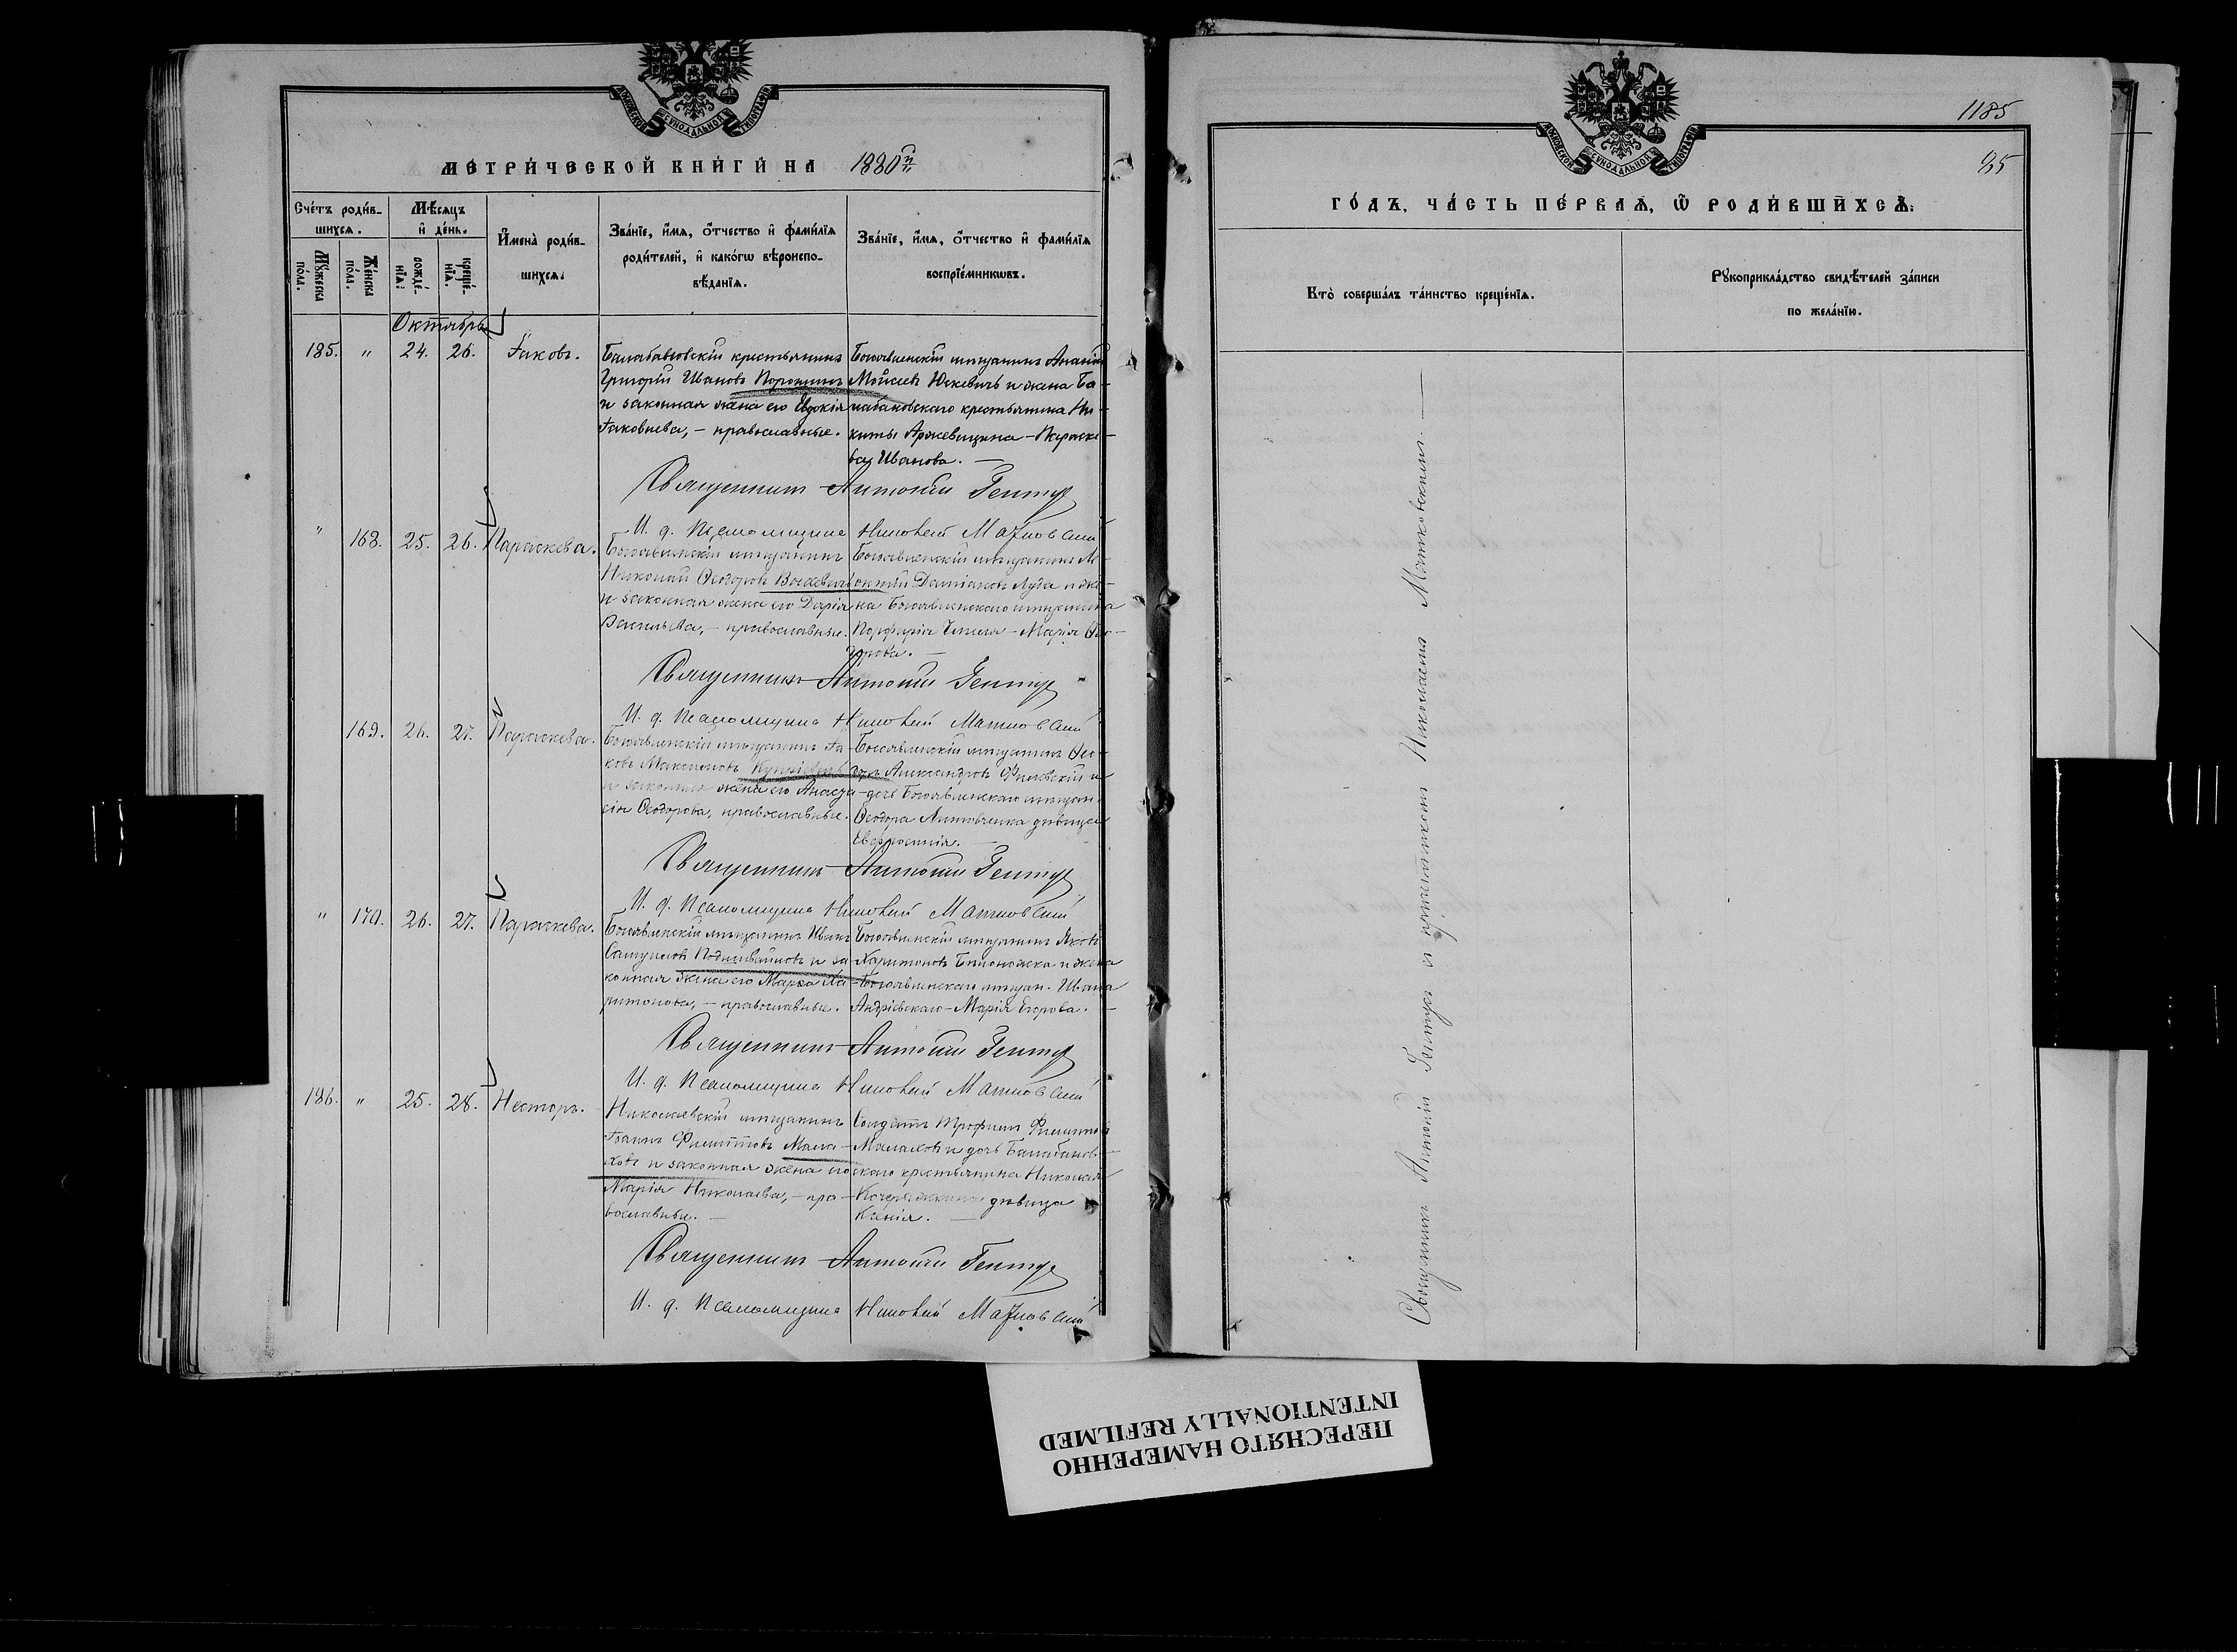 МОСКОВСКОЙ СѴНОДАЛЬНОЙ ТИПОГРАФІИ
МЕТРИ́ЧЕСКОЙ КНИ́ГИ НА 1880й
Сче́тъ роди́в-
шихсѧ.
Мѣ́сѧцъ
и҆ де́нь.
Мꙋ́жеска
по́ла.
Же́нска
по́ла.
рожде́-
нїѧ.
креще́-
нїѧ.
И҆мена̀ роди́в-
шихсѧ.
Зва́нїе, и҆́мѧ, ѻ҆́тчество и҆ фами́лїѧ
роди́телей, и҆ како́гѡ вѣроиспо-
вѣ́данїѧ.
Зва́нїе, и҆́мѧ, ѻ҆́тчество и҆ фами́лїѧ
воспрїе́мникѡвъ.
Октябрь
185. " 24. 26. Іаковъ.
Балабановскій крестьянинъ
Григорій Ивановъ Порохнинъ
и законная жена его Евдокія
Іаковлева, – православные.
Богоявленскій мѣщанинъ Ананій
Мойсеевъ Юскевичъ и жена Ба-
лабановскаго крестьянина Ни-
киты Аржевитина – Параске-
ва Иванова. –
Священникъ Антоній Гентуг
И. д. Псаломщика Зиновій Матковскій
" 168. 25. 26. Параскева.
Богоявленскій мѣщанинъ
Николай Ѳеодоровъ
и законная жена его Дарія
Васильева, – православные.
Богоявленскій мѣщанинъ Ле-
онтій Даміановъ Луга и же-
на Богоявленскаго мѣщанина
Порфирія – Марія Ѳео-
дорова. –
Священникъ Антоній Гентуг
И. д. Псаломщика Зиновій Матковскій
169. 26. 27. Параскева.
Богоявленскій мѣщанинъ Іа-
ковъ Максимовъ
и законная жена его Анаста-
сія Ѳеодорова, православные.
Богоявленскій мѣщанинъ Ѳео-
доръ Александровъ Филевскій и
дочь Богоявленскаго мѣщан.
Ѳеодора Литовченка дѣвица
Евфросинія. –
Священникъ Антоній Гентуг
И. д. Псаломщика Зиновій Матковскій
" 170. 26. 27. Параскева.
Богоявленскій мѣщанинъ Иванъ
Самуиловъ и за-
конная жена его Марѳа Ха-
ритонова, – православные.
Богоявленскій мѣщанинъ Яковъ
Харитоновъ Бѣлоножка и жена
Богоявленскаго мѣщан. Ивана
Андріевскаго – Марія Егорова. –
Священникъ Антоній Гентуг
И. д. Псаломщика Зиновій Матковскій
186. " 25. 28. Несторъ.
Николаевскій мѣщанинъ
Іоаннъ Филипповъ Мала-
ховъ и законная жена его
Марія Николаева, – пра-
вославные. –
Солдатъ Трофимъ Филипповъ
Малаховъ и дочь Балабанов-
скаго крестьянина Николая
дѣвица
Ксенія. –
Священникъ Антоній Гентуг
И. д. Псаломщика Зиновій Матковскій
1185
85
МОСКОВСКОЙ СѴНОДАЛЬНОЙ ТИПОГРАФІИ
ГО́ДЪ, ЧА́СТЬ ПЕ́РВАѦ, Ѿ РОДИ́ВШИХСѦ.
Кто̀ соверша́лъ та́инство креще́нїѧ.
Рꙋкоприкла́дство свидѣ́телей за́писи
по жела́нїю.
Священникъ Антоній Гентуг съ причетникомъ Николаемъ Матковскимъ. –
ПЕРЕСНЯТО НАМЕРЕННО
INTENTIONALLY REFILMED